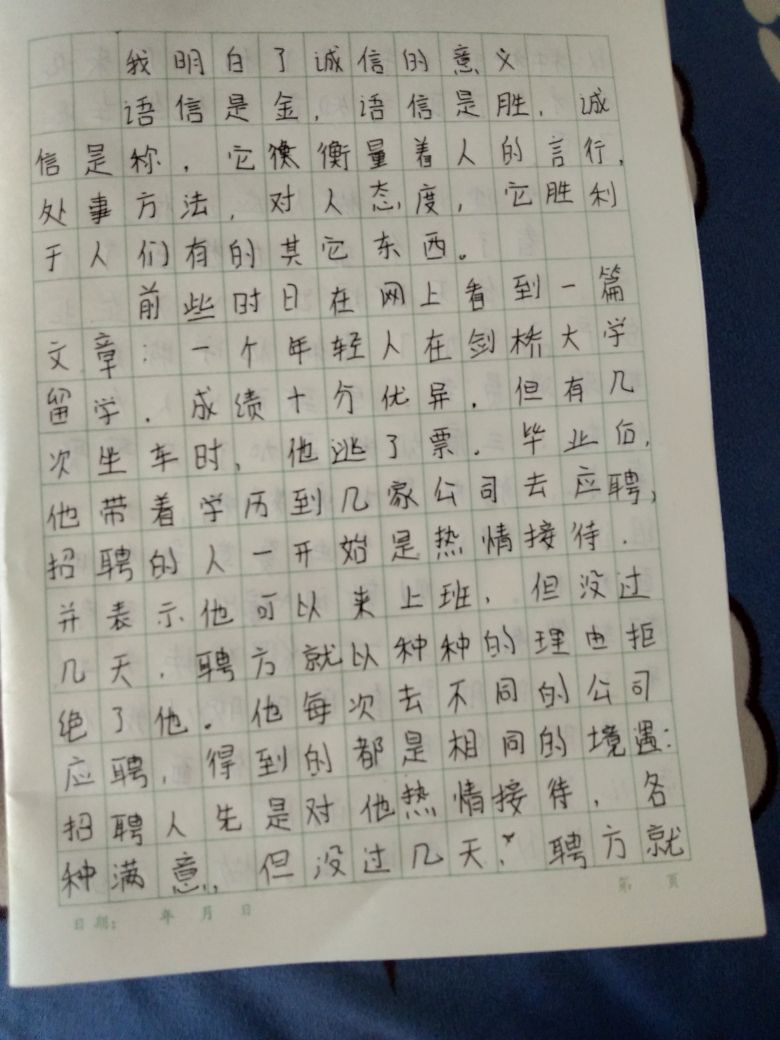 我明白了诚信的意义
语信是金,语信是胜,诚
信是称,它衡衡量着人的言行,
处事方法,对人态度,它胜利
于人们有的其它东西。
前些时日在网上看到一篇
文章:一个年轻人在剑桥大学
留学,成绩十分优异,但有几
次坐车时,他逃了票。毕业后,
他带着学历到几家公司去应聘,
招聘的人一开始是热情接待,
并表示他可以来上班,但没过
几天,聘方就以种种的理由拒
绝了他。他每次去不同的公司
应聘,得到的都是相同的境遇:
招聘人先是对他热情接待,各
种满意,但没过几天,聘方就
日期: 年 月 日
第 页